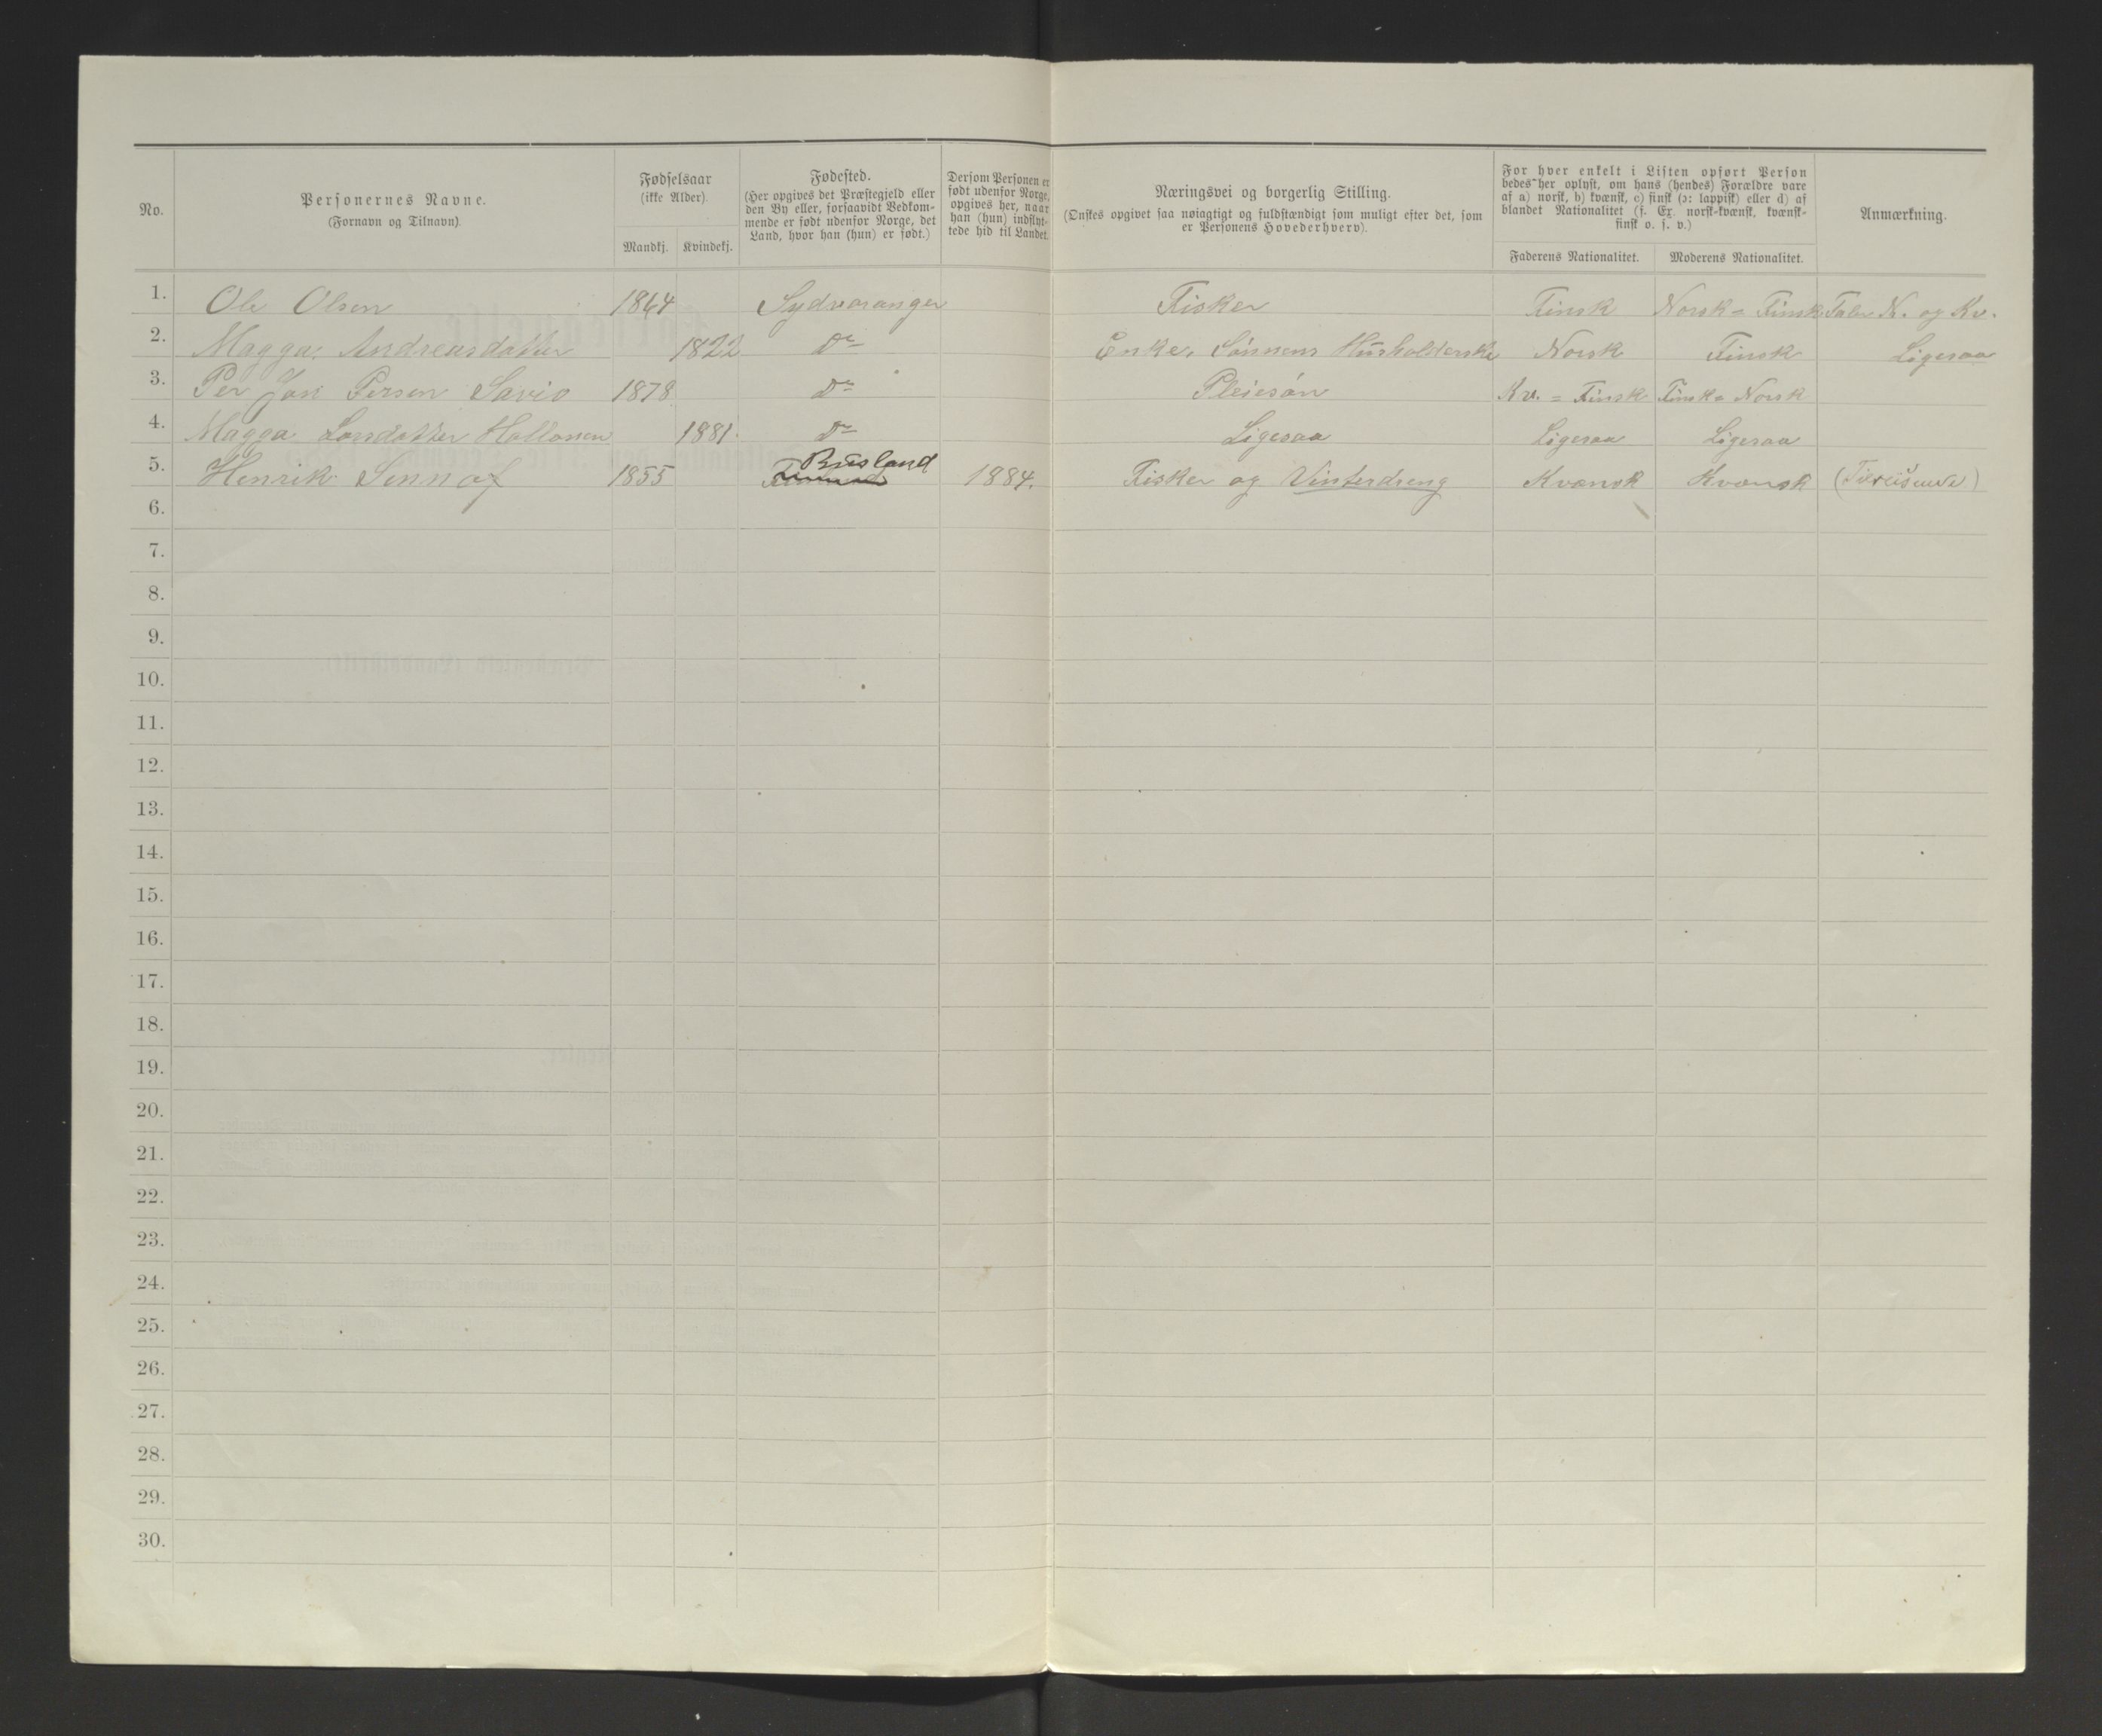 No.
Personernes Navne.
(Fornavn og Tilnavn).
Fødselsaar
(ikke Alder).
Mandkj. Kvindekj.
Fødested.
(Her opgives det Præstegjeld eller
den By eller, forsaavidt Vedkom-
mende er født udenfor Norge, det
Land, hvor han (hun) er født.)
Dersom Personen er
født udenfor Norge,
opgives her, naar
han (hun) indflyt-
tede hid til Landet.
Næringsvei og borgerlig Stilling.
(Ønskes opgivet saa nøiagtigt og fuldstændigt som muligt efter det, som
er Personens Hovederhverv).
For hver enkelt i Listen opført Person
bedes her oplyst, om hans (hendes) Forældre vare
af a) norsk, b) kvænsk, c) finsk (ɔ: lappisk) eller d) af
blandet Nationalitet (f. Ex. norsk-kvænsk, kvænsk-
finsk o. s. v.)
Faderens Nationalitet. Moderens Nationalitet.
Anmærkning.
1. Ole Olsen 1864 Sydvaranger Fisker Finsk Norsk = Finsk Taler N. og Kv.
2. Magga Andreasdatter 1822 Do Enke, Sønnens Husholderske Norsk Finsk Ligesaa
3. Per Jon Persen Savio 1878 Do Pleiesøn Kv. = Finsk Finsk = Norsk
4. Magga Larsdatter Hallonen 1881. Do Ligesaa Ligesaa Ligesaa
5. Henrik 1855 Rusland 1884. Fisker og Vinterdreng Kvænsk Kvænsk
6.
7.
8.
9.
10.
11.
12.
13.
14.
15.
16.
17.
18.
19.
20.
21.
22.
23.
24.
25.
26.
27.
28.
29.
30.